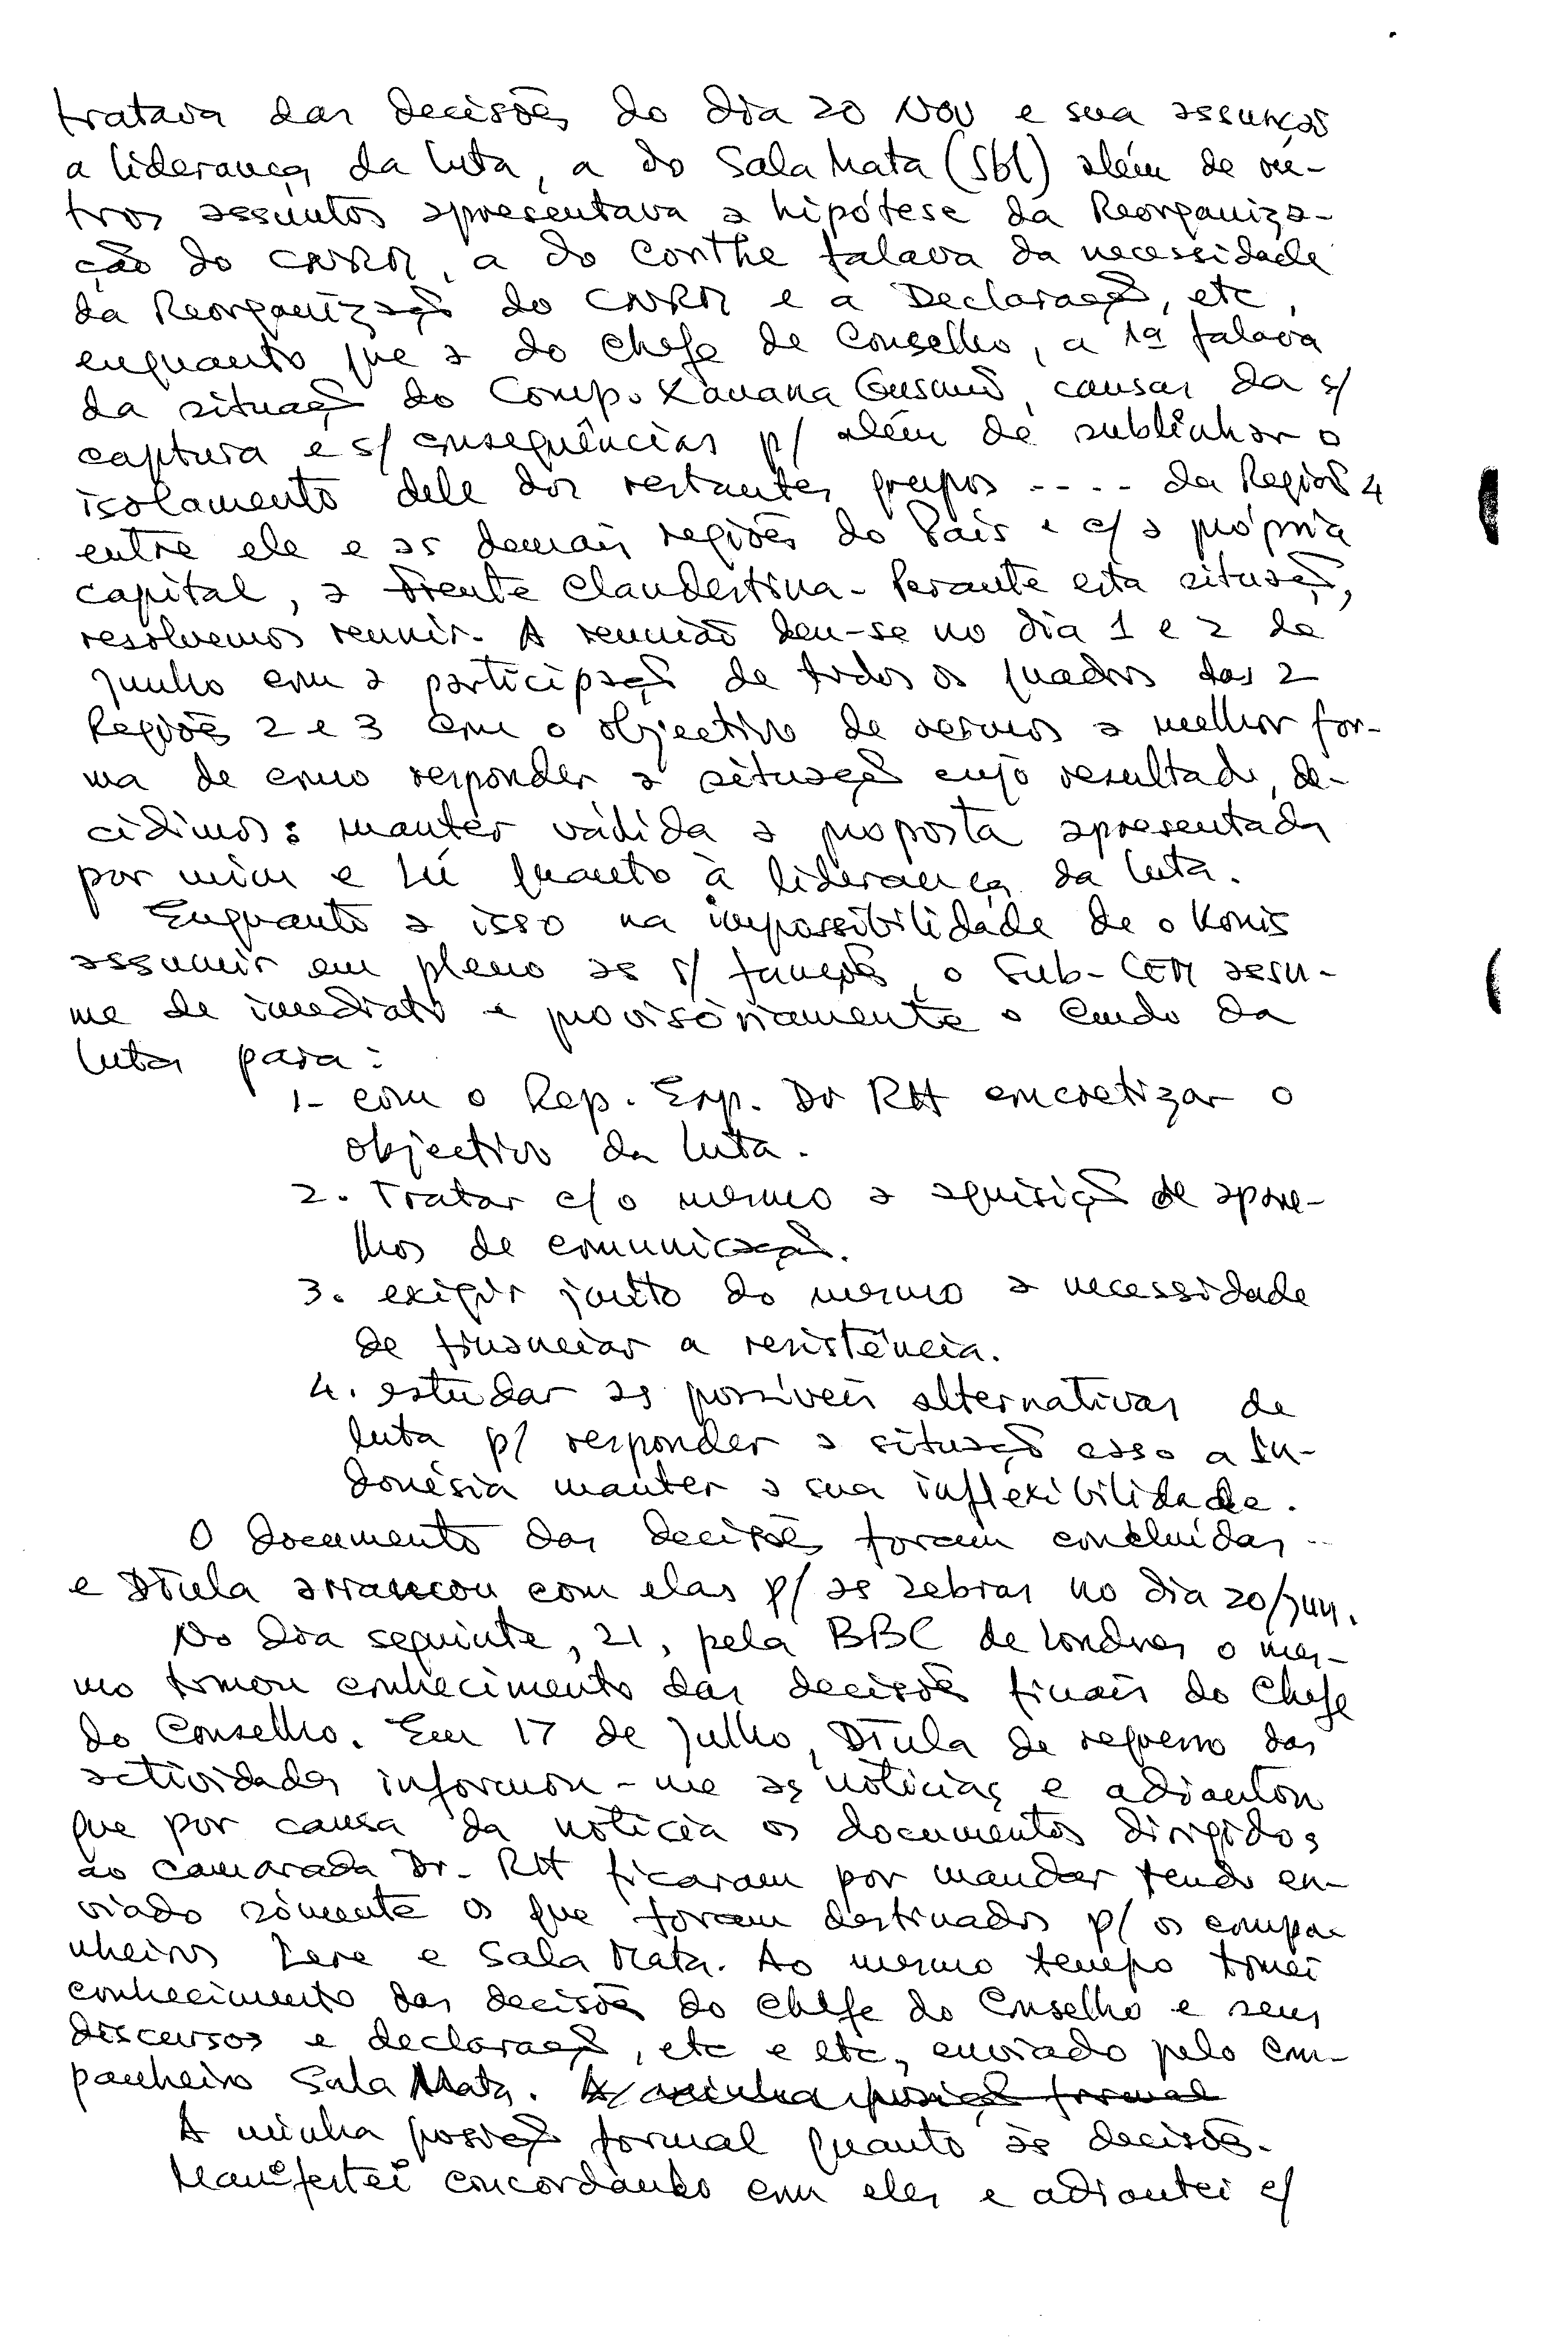 tratava das decisões do dia 20 Nov e sua assunção
a liderança da luta, a do Sala Mata (Sbl) além de ou-
tros assuntos apresentava a hipótese da Reorganiza-
ção do CNRM, a do Conthe falava da necessidade
da Reorganização do CNRM e a Declaração, etc,
enquanto que a do Chefe de Conselho, a 1ª falava
da situação do Comp. Xanana Gusmão, causas da s/
captura e s/ consequências p/ além de sublinhar o
isolamento dele dos restantes grupos .... da Região 4
entre ele e as demais regiões do País e c/ a própria
capital, a Frente Clandestina. Perante esta situação,
resolvemos reunir. A reunião deu-se no dia 1 e 2 de
Junho com a participação de todos os quadros das 2
Regiões 2 e 3 com o objectivo de vermos a melhor for-
ma de como responder a situação cujo resultado, de-
cidimos: manter válida a proposta apresentada
por mim e Lú quanto à liderança da luta.
Enquanto a isso na impossibilidade de o Konis
assumir em pleno as s/ funções, o Sub-CEM assu-
me de imediato e provisóriamente o Cmdo da
luta para:
1- com o Rep. Esp. Dr RH concretizar o
objectivo da luta.
2. Tratar c/ o mesmo a aquisição de apare-
lhos de comunicação.
3. exigir junto do mesmo a necessidade
de financiar a resistência.
4. estudar as possíveis alternativas de
luta p/ responder a situação caso a In-
donésia manter a sua inflexibilidade.
O documento das decisões foram concluídas
e Dtula arrancou com elas p/ as zebras no dia 20/Jun.
No dia seguinte, 21, pela BBC de Londres o mes-
mo tomou conhecimento das decisões finais do Chefe
do Conselho. Em 17 de Julho, Dtula de regresso das
actividades informou-me as notícias e adiantou
que por causa da notícia os documentos dirigidos
ao camarada Dr. RH ficaram por mandar tendo en-
viado sómente os que foram destinados p/ os compa-
nheiros Lere e Sala Mata. Ao mesmo tempo tomei
conhecimento das decisões do Chefe do Conselho e seus
discursos e declaração, etc e etc, enviado pelo com-
panheiro Sala Mata. A minha posição formal
A minha posição formal quanto às decisões.
Manifestei concordando com eles e adiantei c/